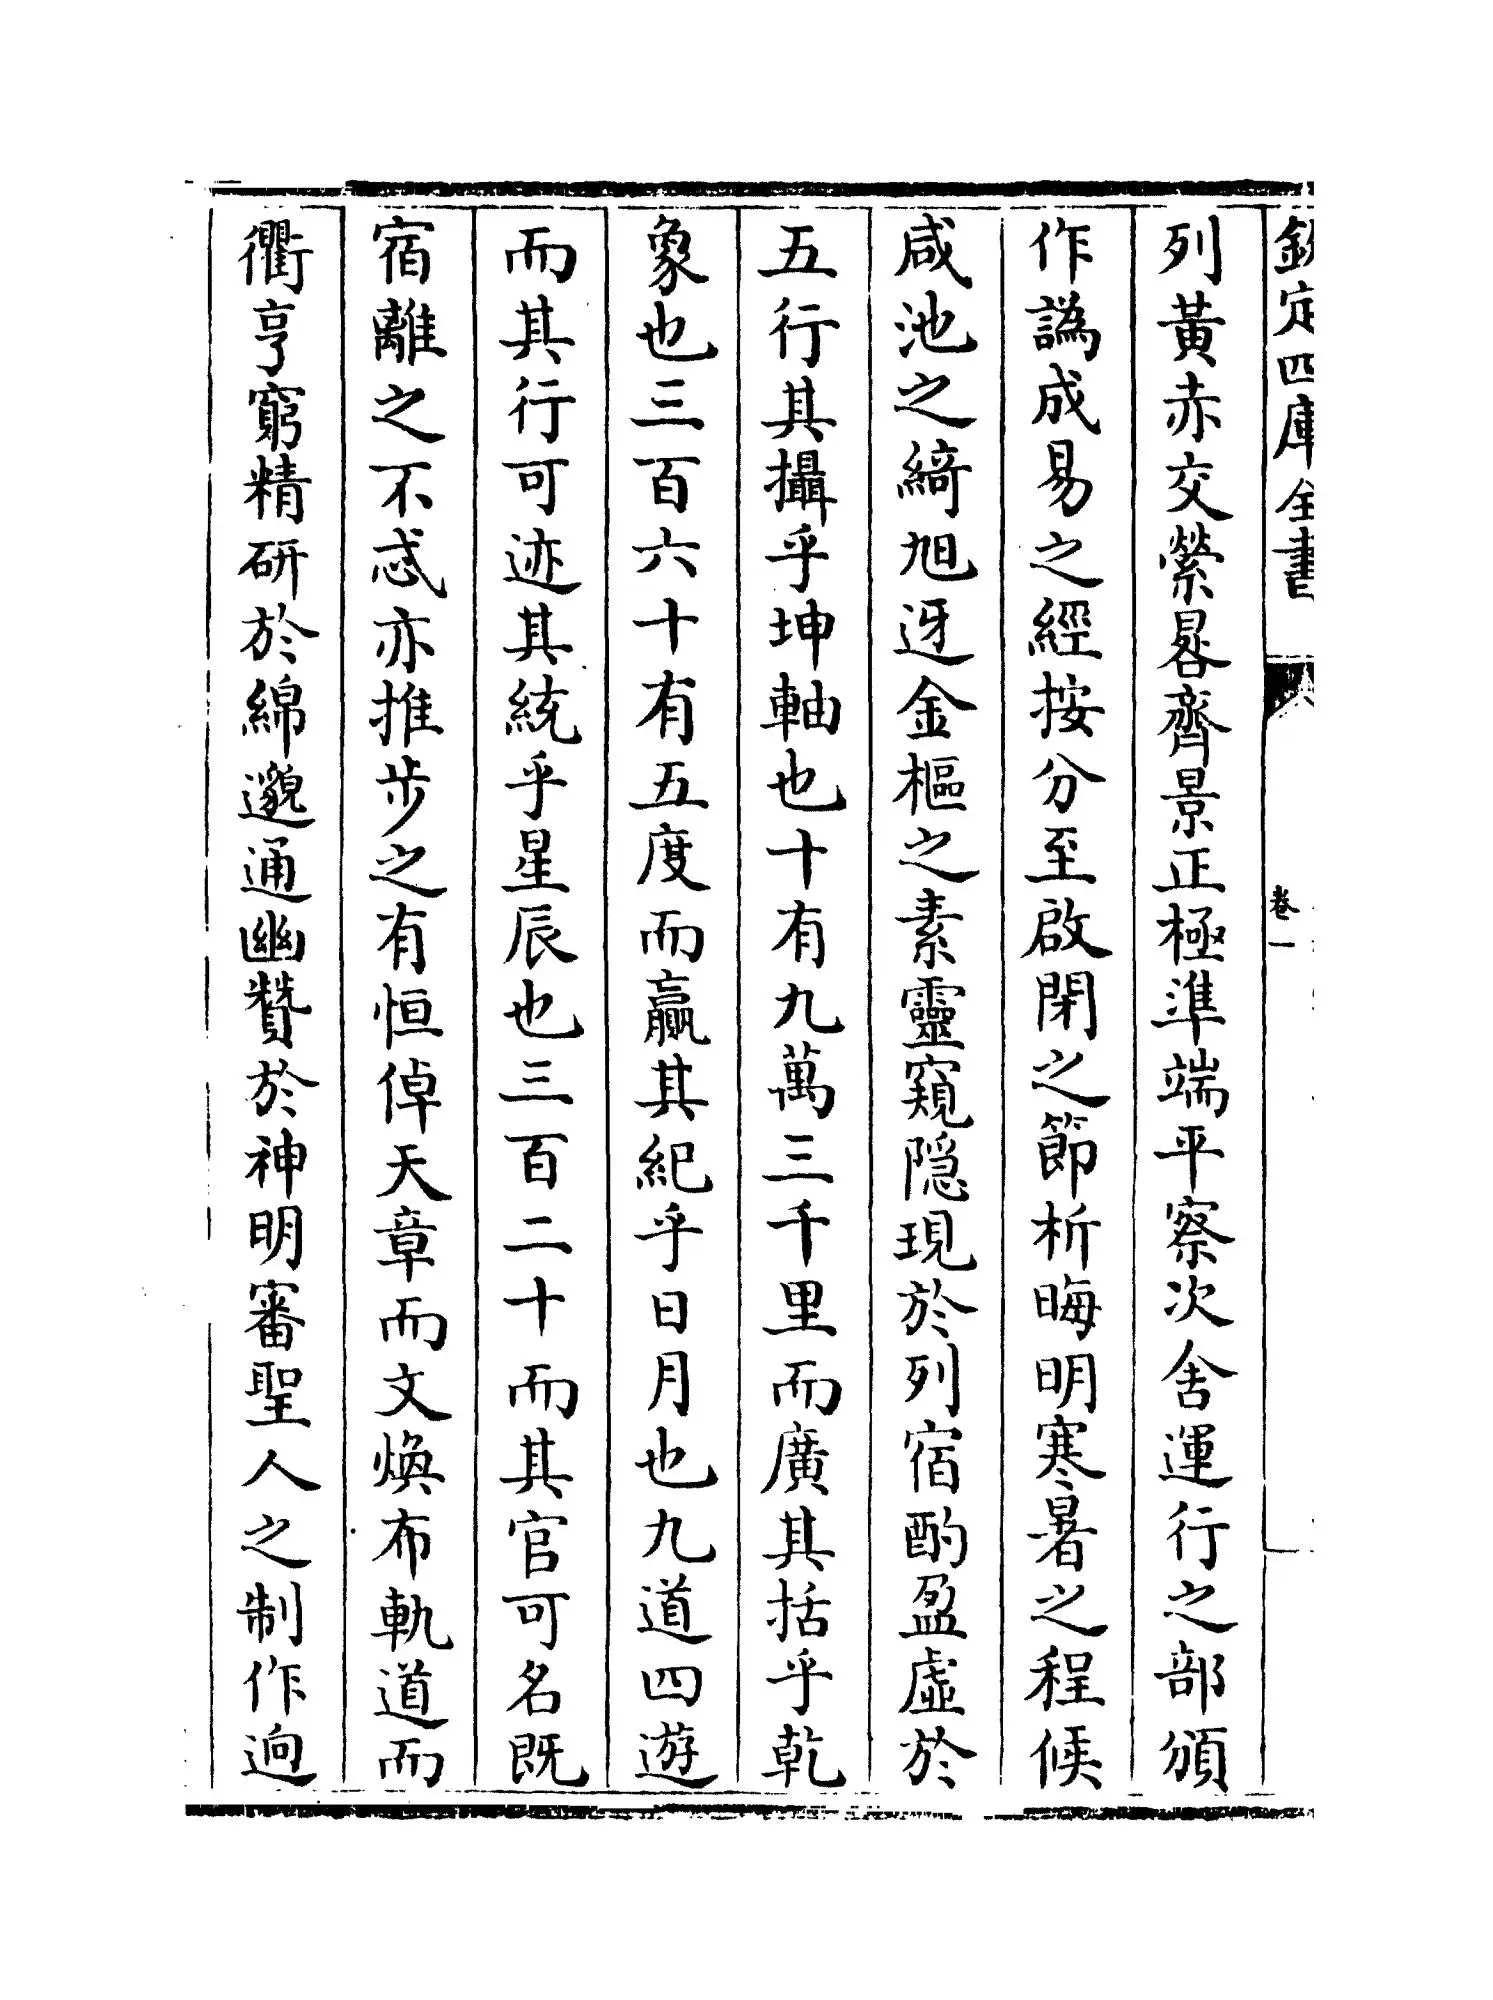 欽定四庫全書
卷一
列黃赤交縈晷齊景正極準端平察次舍運行之部頒
作譌成易之經按分至啟閉之節析晦明寒暑之程候
咸池之綺旭迓金樞之素靈窺隱現於列宿酌盈虛於
五行其攝乎坤軸也十有九萬三千里而廣其括乎乾
象也三百六十有五度而贏其紀乎日月也九道四遊
而其行可迹其統乎星辰也三百二十而其官可名既
宿離之不忒亦推步之有恒倬天章而文煥布軌道而
衢亨窮精研於綿邈通幽贊於神明審聖人之制作迥